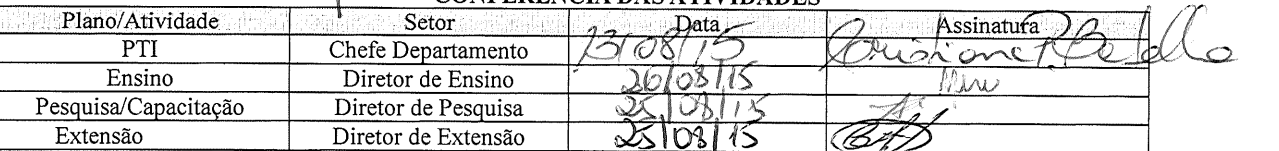 CONFERÊNCIA DAS ATIVIDADES
Plano/Atividade Setor Data Assinatura
PTI Chefe Departamento 13/08/15
Ensino Diretor de Ensino 26/08/15
Pesquisa/Capacitação Diretor de Pesquisa 25/08/15
Extensão Diretor de Extensão 25/08/15